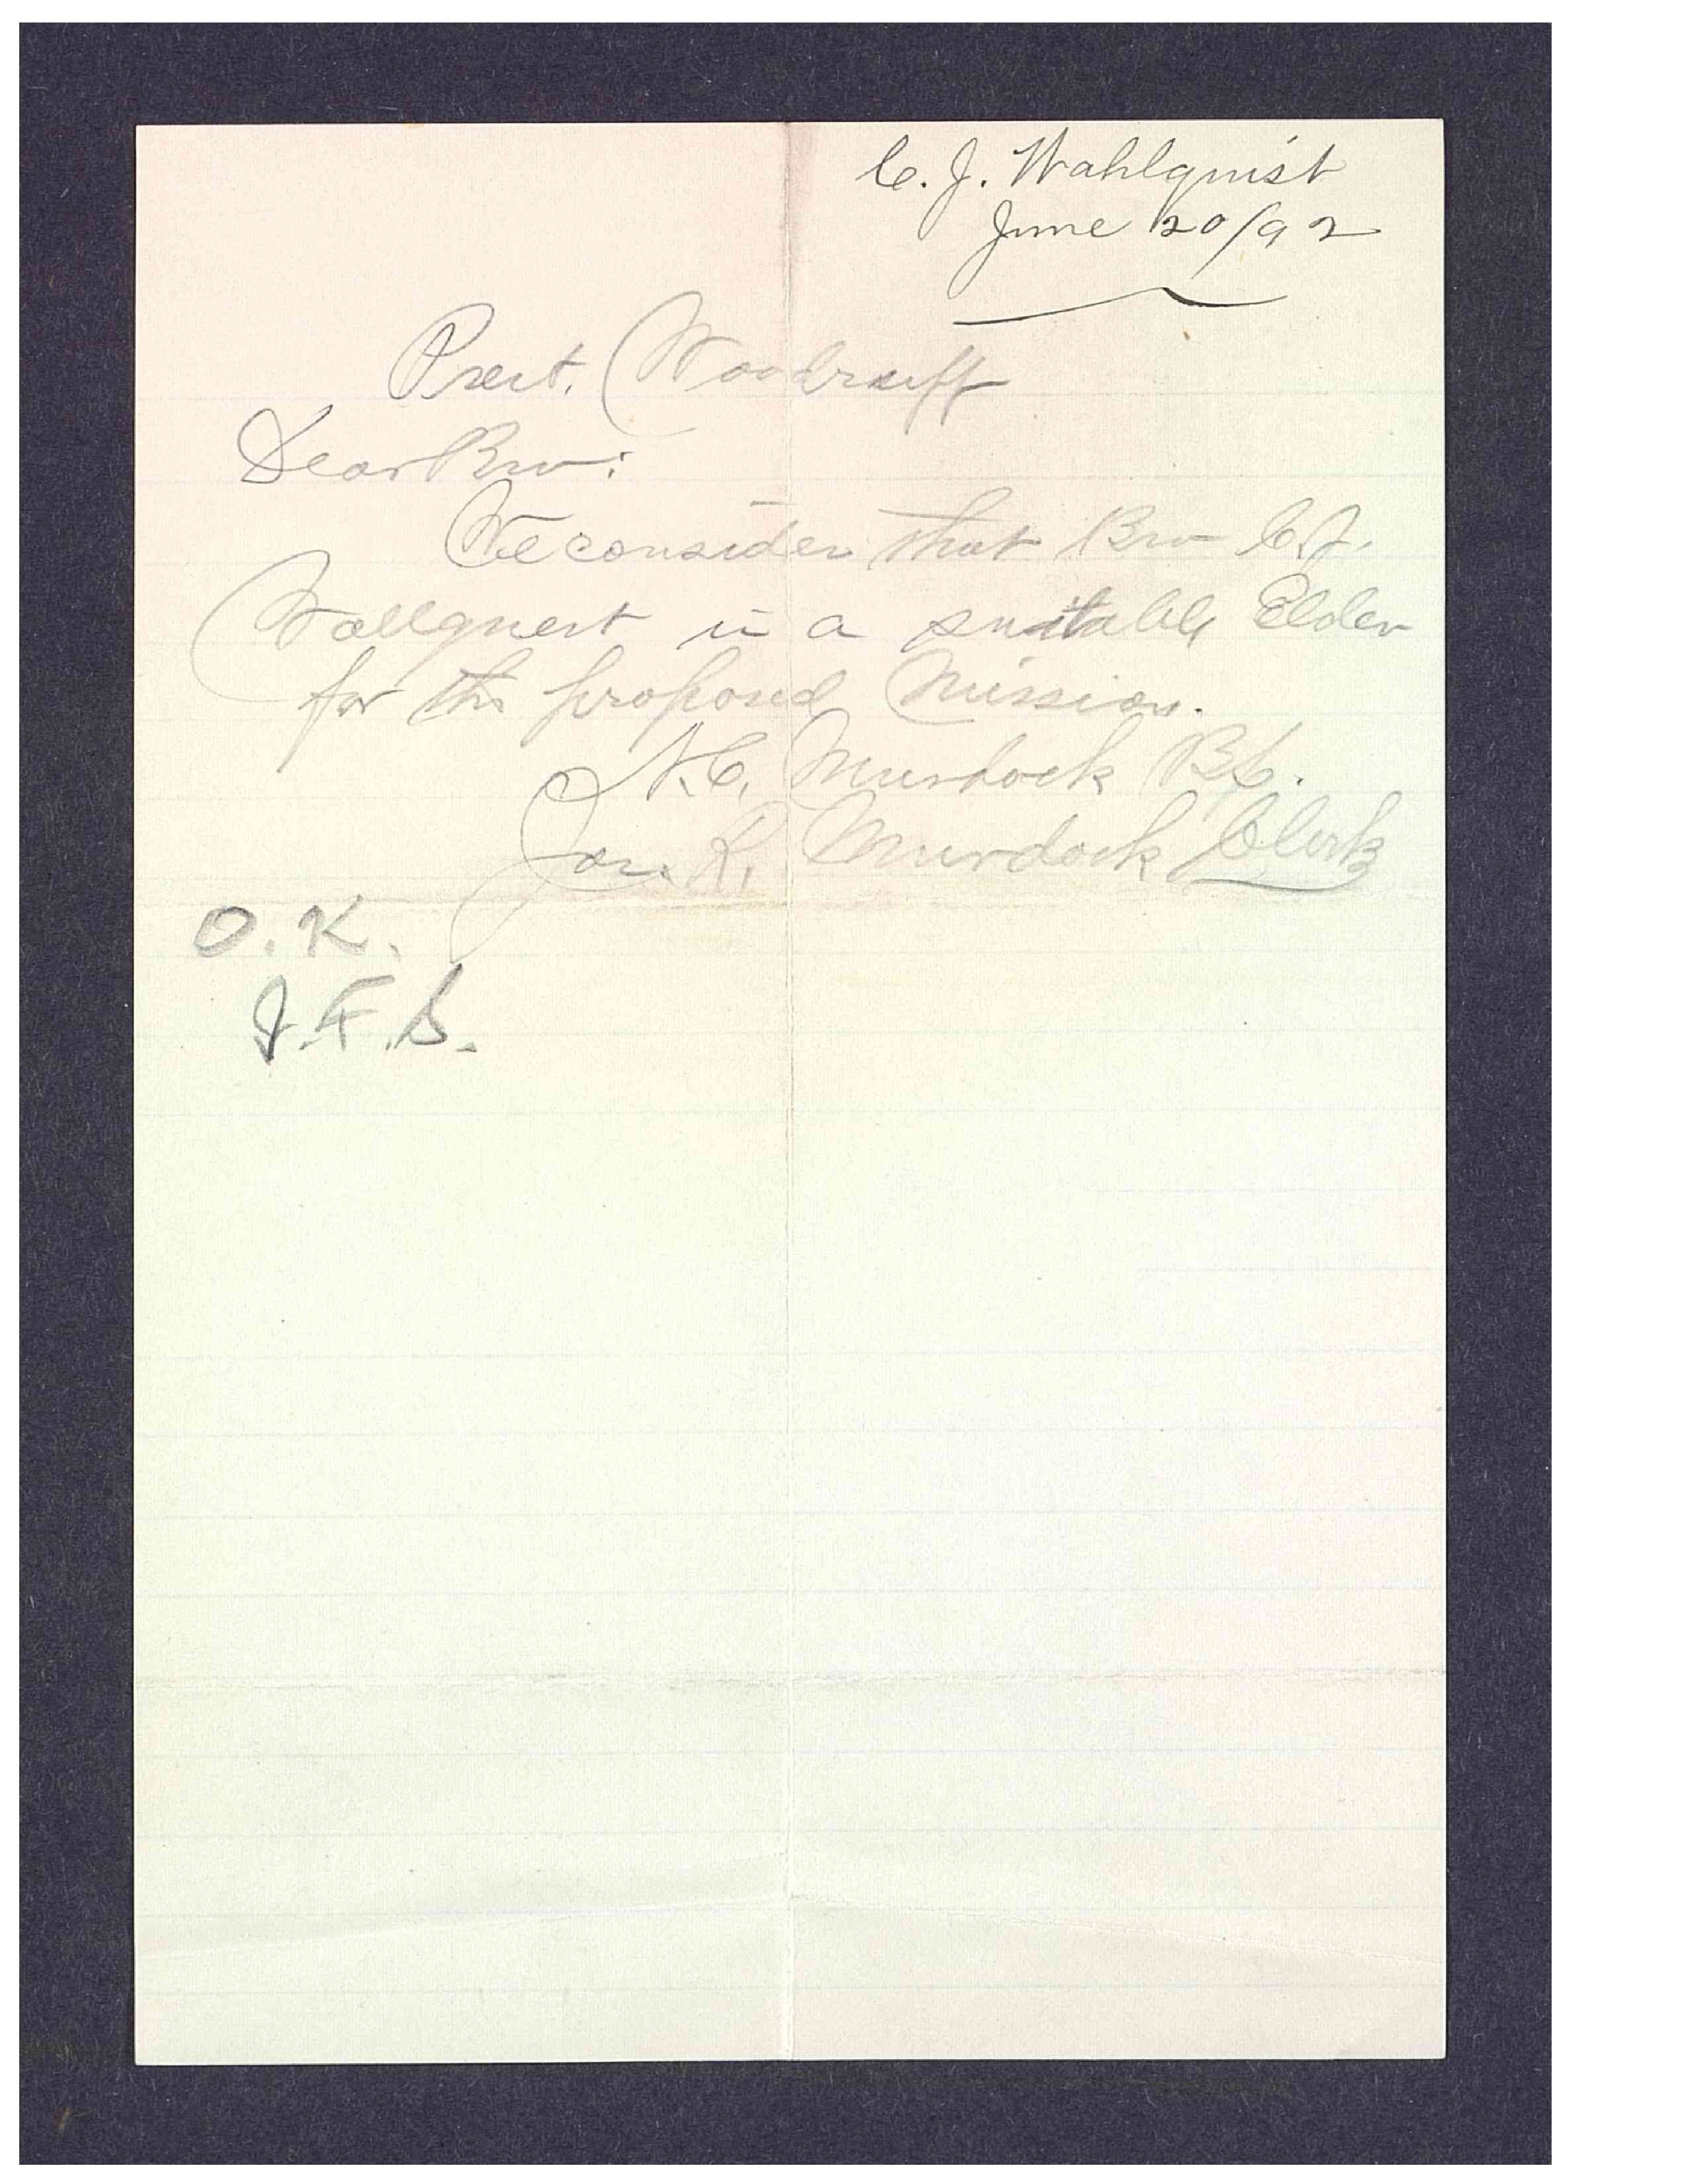 C. J. Wahlquist
June 20/92
Prest. Woodruff
Dear Bro:
We consider that Bro C. J.
Wallquest is a suitable Elder
for the proposed Mission.
Murdock
Jos. R. Murdock Clerk
O. K.
J. F. S.